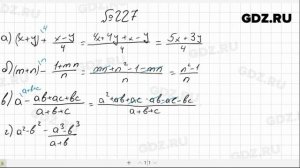 GDZ.RU
№227
а) (x+y)^4 + x-y/4 = 4x+4y+x-y/4 = 5x+3y/4
б) (m+n)^n - 1+mn/n = mn+n²-1-mn/n = n²-1/n
в) a^{a+b+c} - ab+ac+bc/a+b+c = a²+ab+ac-ab-ac-bc/a+b+c
г) a²-b² - a³-b³/a+b
GDZ.RU